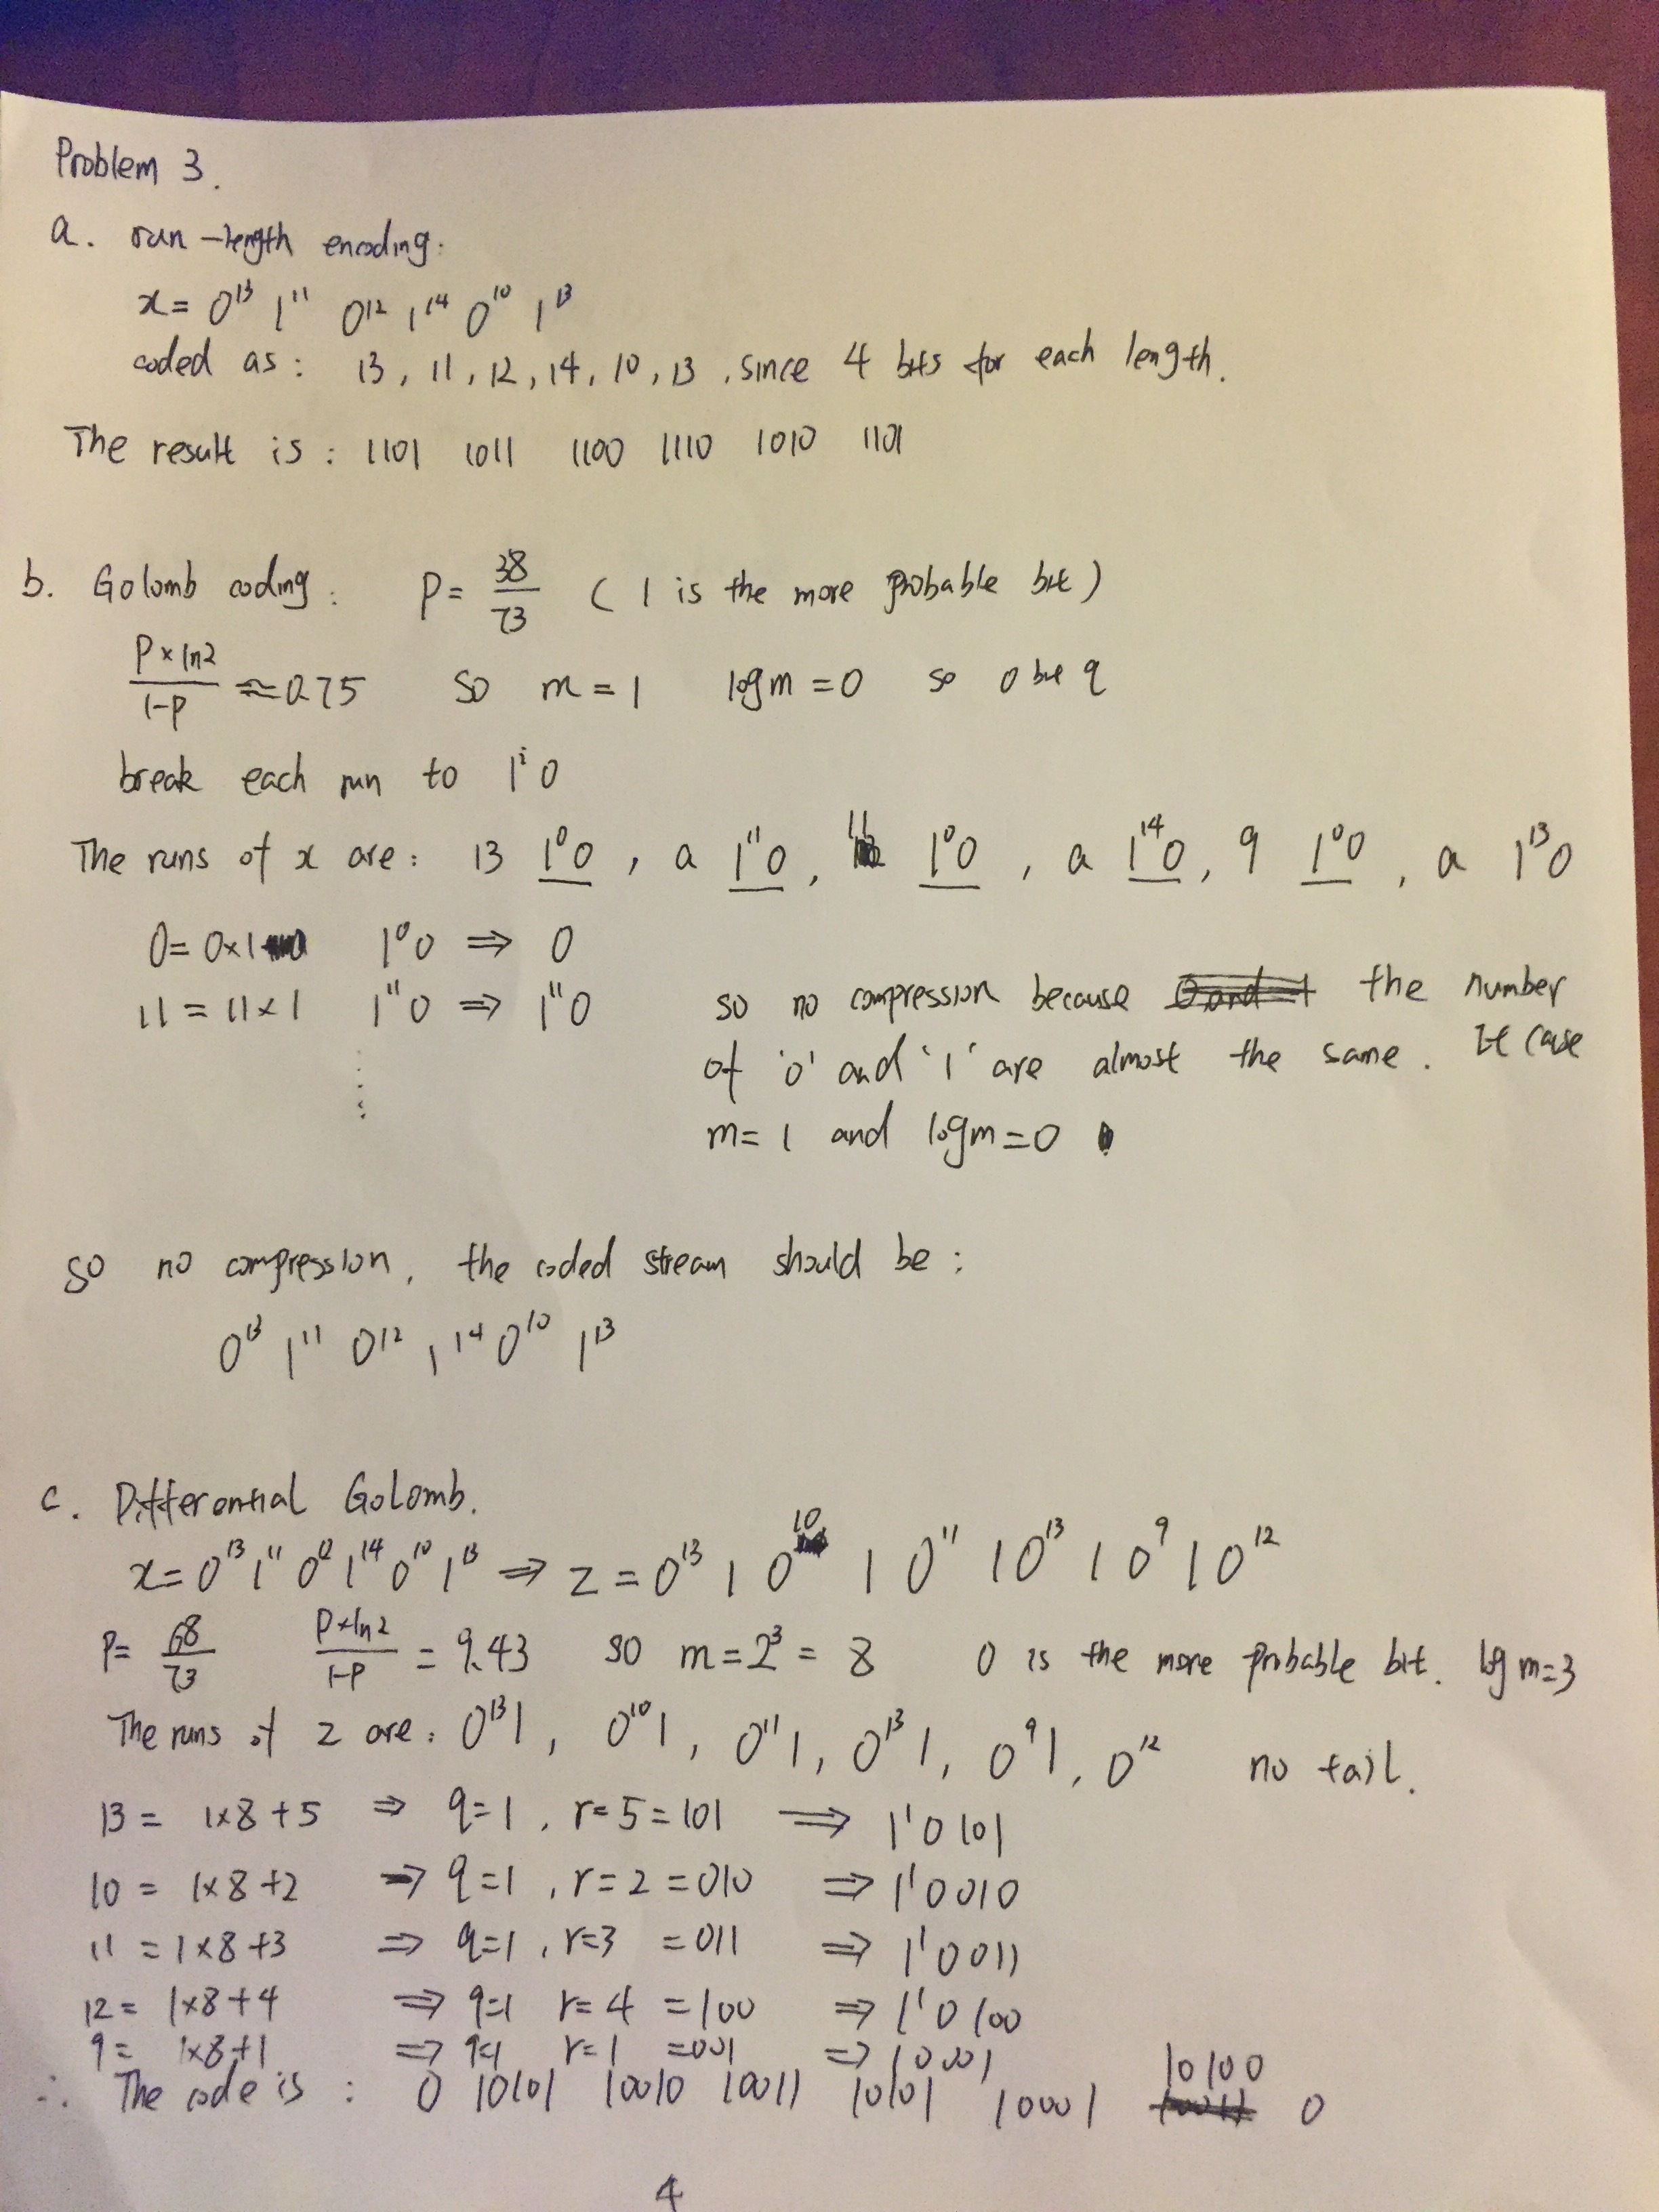 Problem 3.
a. run-length encoding:
x = 0¹³ 1¹¹ 0¹² 1¹⁴ 0¹⁰ 1¹³
coded as: 13, 11, 12, 14, 10, 13, since 4 bits for each length.
The result is: 1101 1011 1100 1110 1010 1101
b. Golomb coding: P = 38/73 (1 is the more probable bit)
P×ln2/1-P ≈ 0.75 so m = 1 log m = 0 so 0 bit q
break each run to 1ⁱ0
The runs of x are: 13 1⁰0, a 1¹¹0, 11 1⁰0, a 1¹⁴0, 9 1⁰0, a 1¹³0
0 = 0×1 1⁰0 ⇒ 0
11 = 11×1 1¹¹0 ⇒ 1¹¹0 so no compression because the number
of '0' and '1' are almost the same. It case
m = 1 and log m = 0
so no compression, the coded stream should be:
0¹³ 1¹¹ 0¹² 1¹⁴ 0¹⁰ 1¹³
c. Differential Golomb.
x = 0¹³ 1¹¹ 0¹² 1¹⁴ 0¹⁰ 1¹³ ⇒ z = 0¹³ 1 0¹⁰ 1 0¹¹ 1 0¹³ 1 0⁹ 1 0¹²
P = 68/73 P×ln2/1-P = 9.43 so m = 2³ = 8 0 is the more probable bit. log m = 3
The runs of z are: 0¹³1, 0¹⁰1, 0¹¹1, 0¹³1, 0⁹1, 0¹² no tail.
13 = 1×8+5 ⇒ q=1, r=5=101 ⇒ 1¹0101
10 = 1×8+2 ⇒ q=1, r=2=010 ⇒ 1¹0010
11 = 1×8+3 ⇒ q=1, r=3 =011 ⇒ 1¹0011
12 = 1×8+4 ⇒ q=1 r=4 =100 ⇒ 1¹0100
9 = 1×8+1 ⇒ q=1 r=1 =001 ⇒ 10001
∴ The code is: 0 10101 10010 10011 10101 10001 10100 0
4